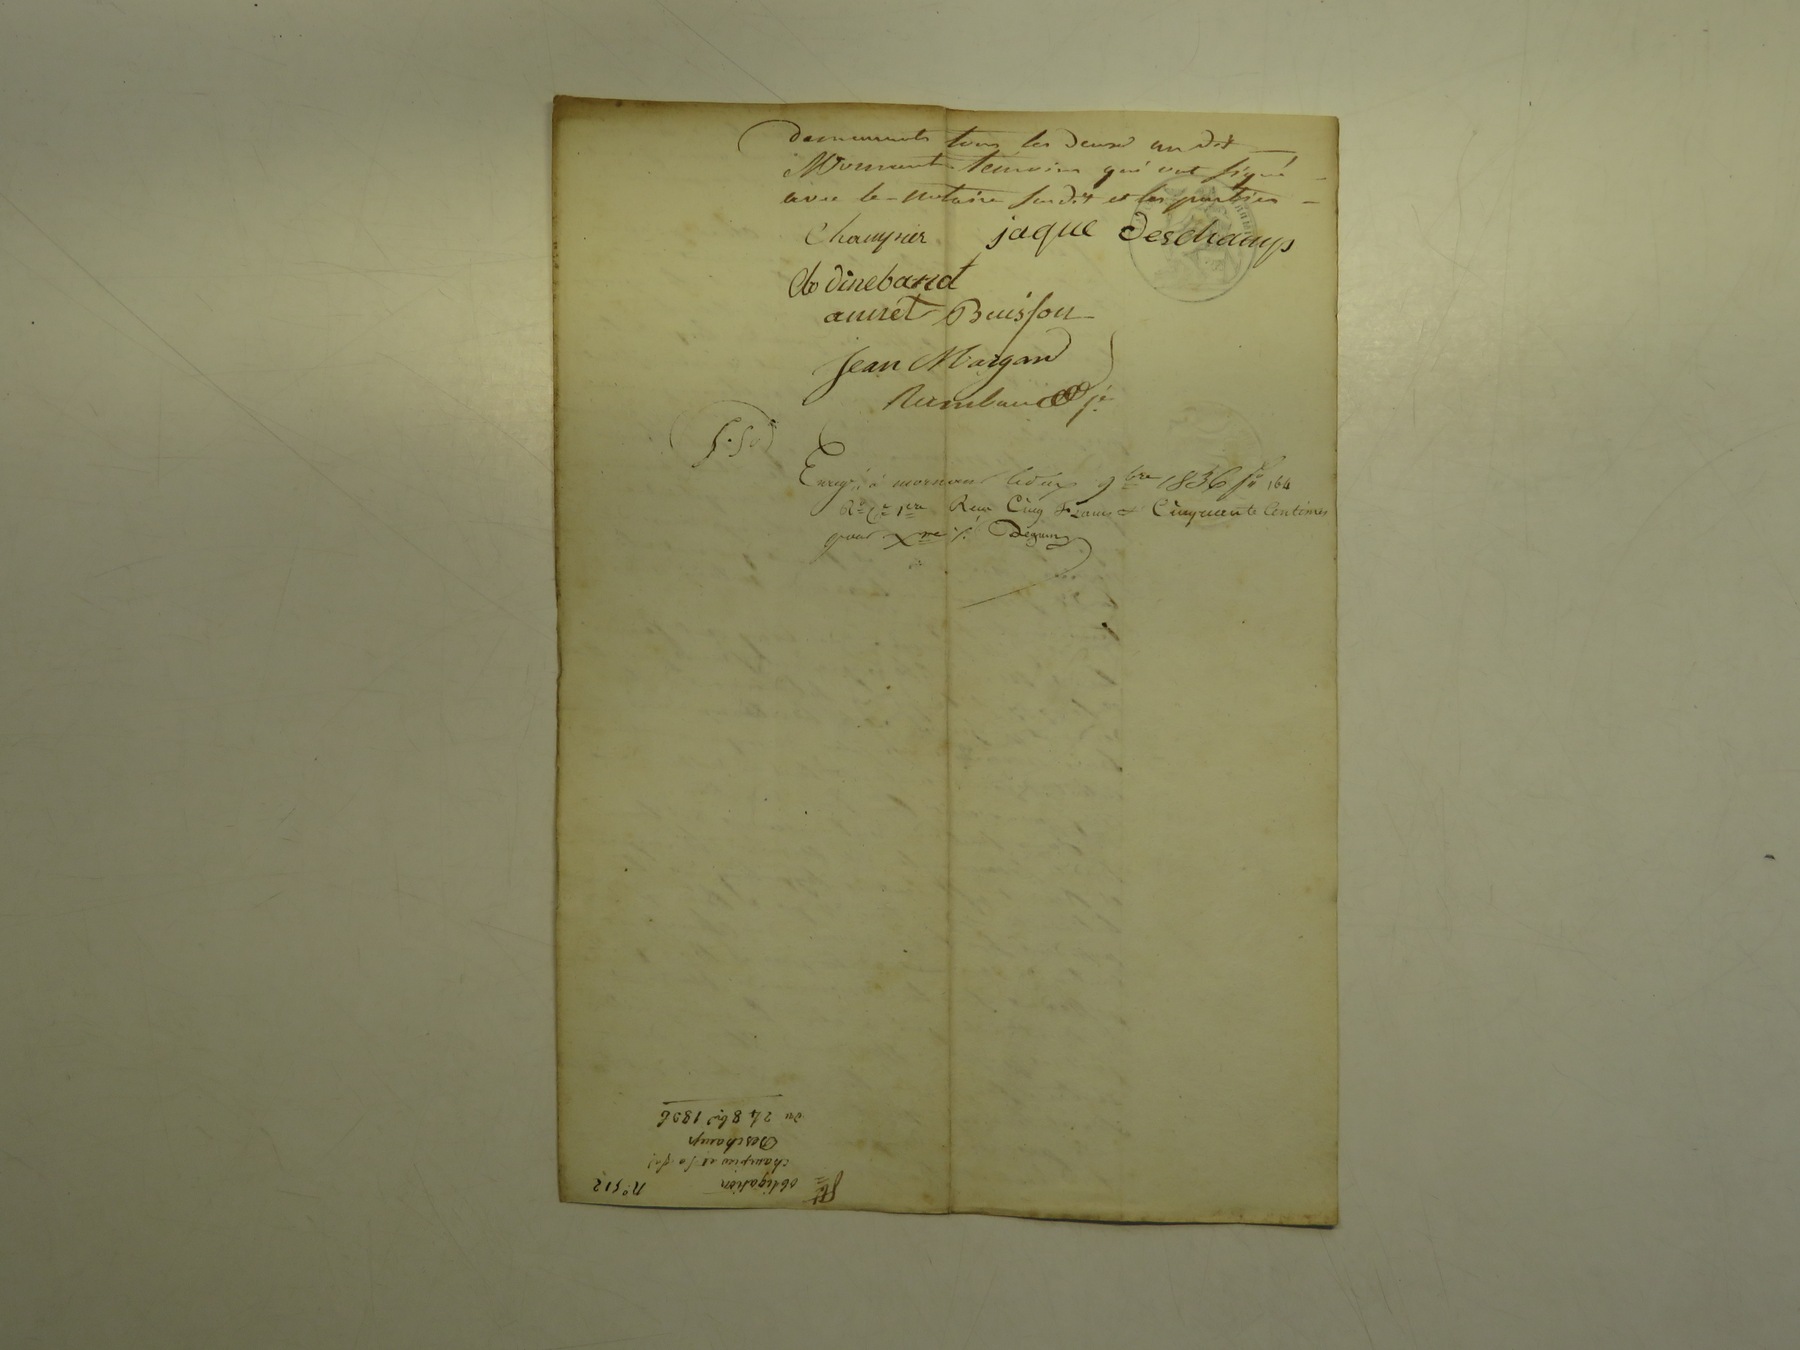 demeurants tous les deux au dit
Mornant temoins qui ont signé
avec le notaire susdit et les parties
Champier jaque Deschamp
Clodine barret
aimet Buisson
Jean Margand
5.50
Enreg. à mornant le deux 9bre 1836 fo 164
Ro Co 1er Recu Cinq Francs & Cinquante Centimes
pour Xme %. Deguin
No 512
obligation
champier et sa
Deschamp
du 24 8bre 1836